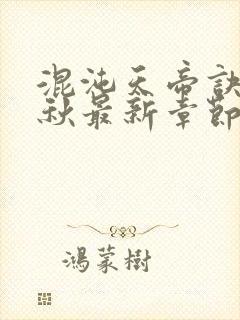 混沌天帝訣
秋最新章節
鴻蒙樹